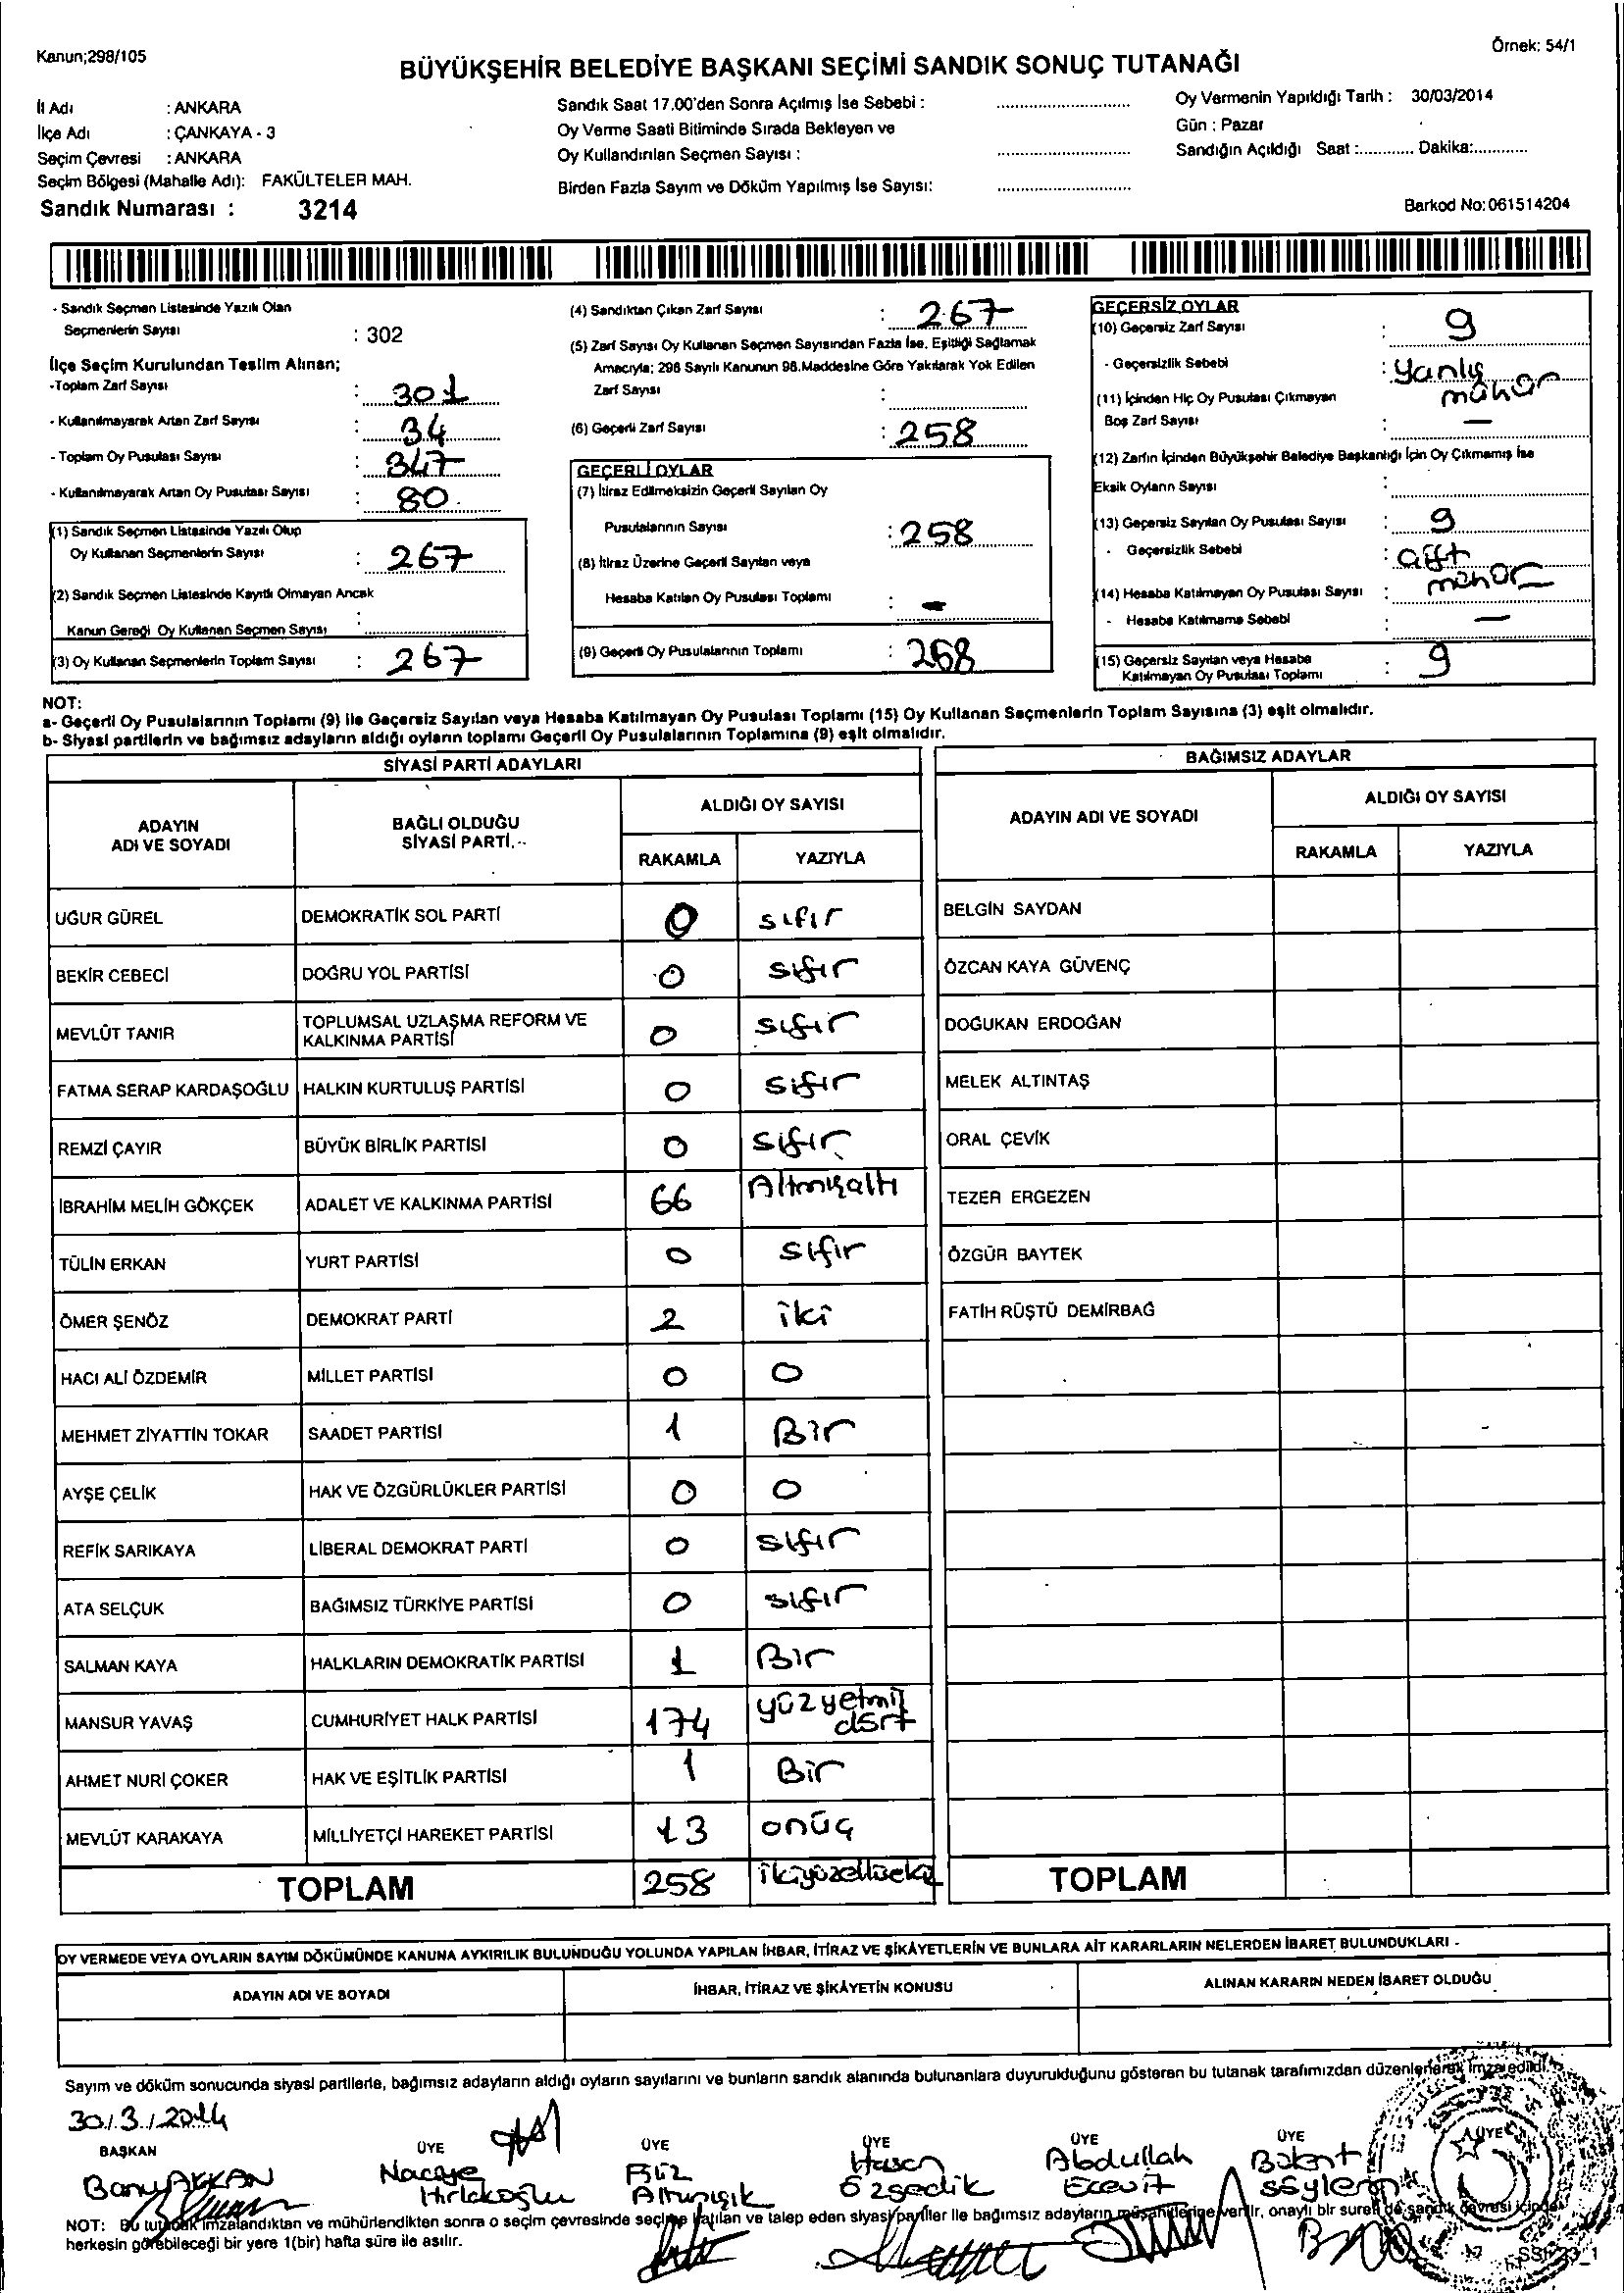 Kanun;298/105
Örnek: 54/1
BÜYÜKŞEHİR BELEDİYE BAŞKANI SEÇİMİ SANDIK SONUÇ TUTANAĞI
İl Adı : ANKARA
İlçe Adı : ÇANKAYA - 3
Seçim Çevresi : ANKARA
Seçim Bölgesi (Mahalle Adı): FAKÜLTELER MAH.
Sandık Numarası : 3214
Sandık Saat 17.00'den Sonra Açılmış İse Sebebi :
Oy Verme Saati Bitiminde Sırada Bekleyen ve
Oy Kullandırılan Seçmen Sayısı :
Birden Fazla Sayım ve Döküm Yapılmış İse Sayısı:
Oy Vermenin Yapıldığı Tarih : 30/03/2014
Gün : Pazar
Sandığın Açıldığı Saat :............ Dakika:............
Barkod No:061514204
- Sandık Seçmen Listesinde Yazılı Olan
Seçmenlerin Sayısı : 302
İlçe Seçim Kurulundan Teslim Alınan;
-Toplam Zarf Sayısı : 301
- Kullanılmayarak Artan Zarf Sayısı : 34
- Toplam Oy Pusulası Sayısı : 347
- Kullanılmayarak Artan Oy Pusulası Sayısı : 80
(1) Sandık Seçmen Listesinde Yazılı Olup
Oy Kullanan Seçmenlerin Sayısı : 267
(2) Sandık Seçmen Listesinde Kayıtlı Olmayan Ancak
Kanun Gereği Oy Kullanan Seçmen Sayısı :
(3) Oy Kullanan Seçmenlerin Toplam Sayısı : 267
(4) Sandıktan Çıkan Zarf Sayısı : 267
(5) Zarf Sayısı Oy Kullanan Seçmen Sayısından Fazla İse, Eşitliği Sağlamak
Amacıyla; 298 Sayılı Kanunun 98.Maddesine Göre Yakılarak Yok Edilen
Zarf Sayısı :
(6) Geçerli Zarf Sayısı : 258
GEÇERLİ OYLAR
(7) İtiraz Edilmeksizin Geçerli Sayılan Oy
Pusulalarının Sayısı : 258
(8) İtiraz Üzerine Geçerli Sayılan veya
Hesaba Katılan Oy Pusulası Toplamı : -
(9) Geçerli Oy Pusulalarının Toplamı : 258
GEÇERSİZ OYLAR
(10) Geçersiz Zarf Sayısı : 9
- Geçersizlik Sebebi : Yanlış
mühür
(11) İçinden Hiç Oy Pusulası Çıkmayan
Boş Zarf Sayısı : -
(12) Zarfın İçinden Büyükşehir Belediye Başkanlığı İçin Oy Çıkmamış İse
Eksik Oyların Sayısı :
(13) Geçersiz Sayılan Oy Pusulası Sayısı : 9
- Geçersizlik Sebebi : çift
mühür
(14) Hesaba Katılmayan Oy Pusulası Sayısı :
- Hesaba Katılmama Sebebi : -
(15) Geçersiz Sayılan veya Hesaba
Katılmayan Oy Pusulası Toplamı : 9
NOT:
a- Geçerli Oy Pusulalarının Toplamı (9) ile Geçersiz Sayılan veya Hesaba Katılmayan Oy Pusulası Toplamı (15) Oy Kullanan Seçmenlerin Toplam Sayısına (3) eşit olmalıdır.
b- Siyasi partilerin ve bağımsız adayların aldığı oyların toplamı Geçerli Oy Pusulalarının Toplamına (9) eşit olmalıdır.
SİYASİ PARTİ ADAYLARI
ADAYIN ADI VE SOYADI
BAĞLI OLDUĞU SİYASİ PARTİ
ALDIĞI OY SAYISI
RAKAMLA YAZIYLA
UĞUR GÜREL DEMOKRATİK SOL PARTİ 0 sıfır
BEKİR CEBECİ DOĞRU YOL PARTİSİ 0 sıfır
MEVLÜT TANIR TOPLUMSAL UZLAŞMA REFORM VE KALKINMA PARTİSİ 0 sıfır
FATMA SERAP KARDAŞOĞLU HALKIN KURTULUŞ PARTİSİ 0 sıfır
REMZİ ÇAYIR BÜYÜK BİRLİK PARTİSİ 0 sıfır
İBRAHİM MELİH GÖKÇEK ADALET VE KALKINMA PARTİSİ 66 Altmışaltı
TÜLİN ERKAN YURT PARTİSİ 0 sıfır
ÖMER ŞENÖZ DEMOKRAT PARTİ 2 iki
HACI ALİ ÖZDEMİR MİLLET PARTİSİ 0 0
MEHMET ZİYATTİN TOKAR SAADET PARTİSİ 1 Bir
AYŞE ÇELİK HAK VE ÖZGÜRLÜKLER PARTİSİ 0 0
REFİK SARIKAYA LİBERAL DEMOKRAT PARTİ 0 sıfır
ATA SELÇUK BAĞIMSIZ TÜRKİYE PARTİSİ 0 sıfır
SALMAN KAYA HALKLARIN DEMOKRATİK PARTİSİ 1 Bir
MANSUR YAVAŞ CUMHURİYET HALK PARTİSİ 174 yüzyetmiş dört
AHMET NURİ ÇOKER HAK VE EŞİTLİK PARTİSİ 1 Bir
MEVLÜT KARAKAYA MİLLİYETÇİ HAREKET PARTİSİ 13 onüç
TOPLAM 258
BAĞIMSIZ ADAYLAR
ADAYIN ADI VE SOYADI
ALDIĞI OY SAYISI
RAKAMLA YAZIYLA
BELGİN SAYDAN
ÖZCAN KAYA GÜVENÇ
DOĞUKAN ERDOĞAN
MELEK ALTINTAŞ
ORAL ÇEVİK
TEZER ERGEZEN
ÖZGÜR BAYTEK
FATİH RÜŞTÜ DEMİRBAĞ
TOPLAM
OY VERMEDE VEYA OYLARIN SAYIM DÖKÜMÜNDE KANUNA AYKIRILIK BULUNDUĞU YOLUNDA YAPILAN İHBAR, İTİRAZ VE ŞİKÂYETLERİN VE BUNLARA AİT KARARLARIN NELERDEN İBARET BULUNDUKLARI -
ADAYIN ADI VE SOYADI
İHBAR, İTİRAZ VE ŞİKÂYETİN KONUSU
ALINAN KARARIN NEDEN İBARET OLDUĞU
Sayım ve döküm sonucunda siyasi partilerle, bağımsız adayların aldığı oyların sayılarını ve bunların sandık alanında bulunanlara duyurulduğunu gösteren bu tutanak tarafımızdan düzenlenerek imza edildi.
30/3/2014
BAŞKAN ÜYE ÜYE ÜYE ÜYE ÜYE ÜYE
Banu AKKAN
Naciye
Filiz
Hasan Özgedik
Abdullah Ecevit
Bülent
NOT: Bu tutanak imzalandıktan ve mühürlendikten sonra o seçim çevresinde seçime katılan ve talep eden siyasi partiler ile bağımsız adayların müşahitlerine verilir, onaylı bir sureti de sandık çevresi içinde
herkesin görebileceği bir yere 1(bir) hafta süre ile asılır.